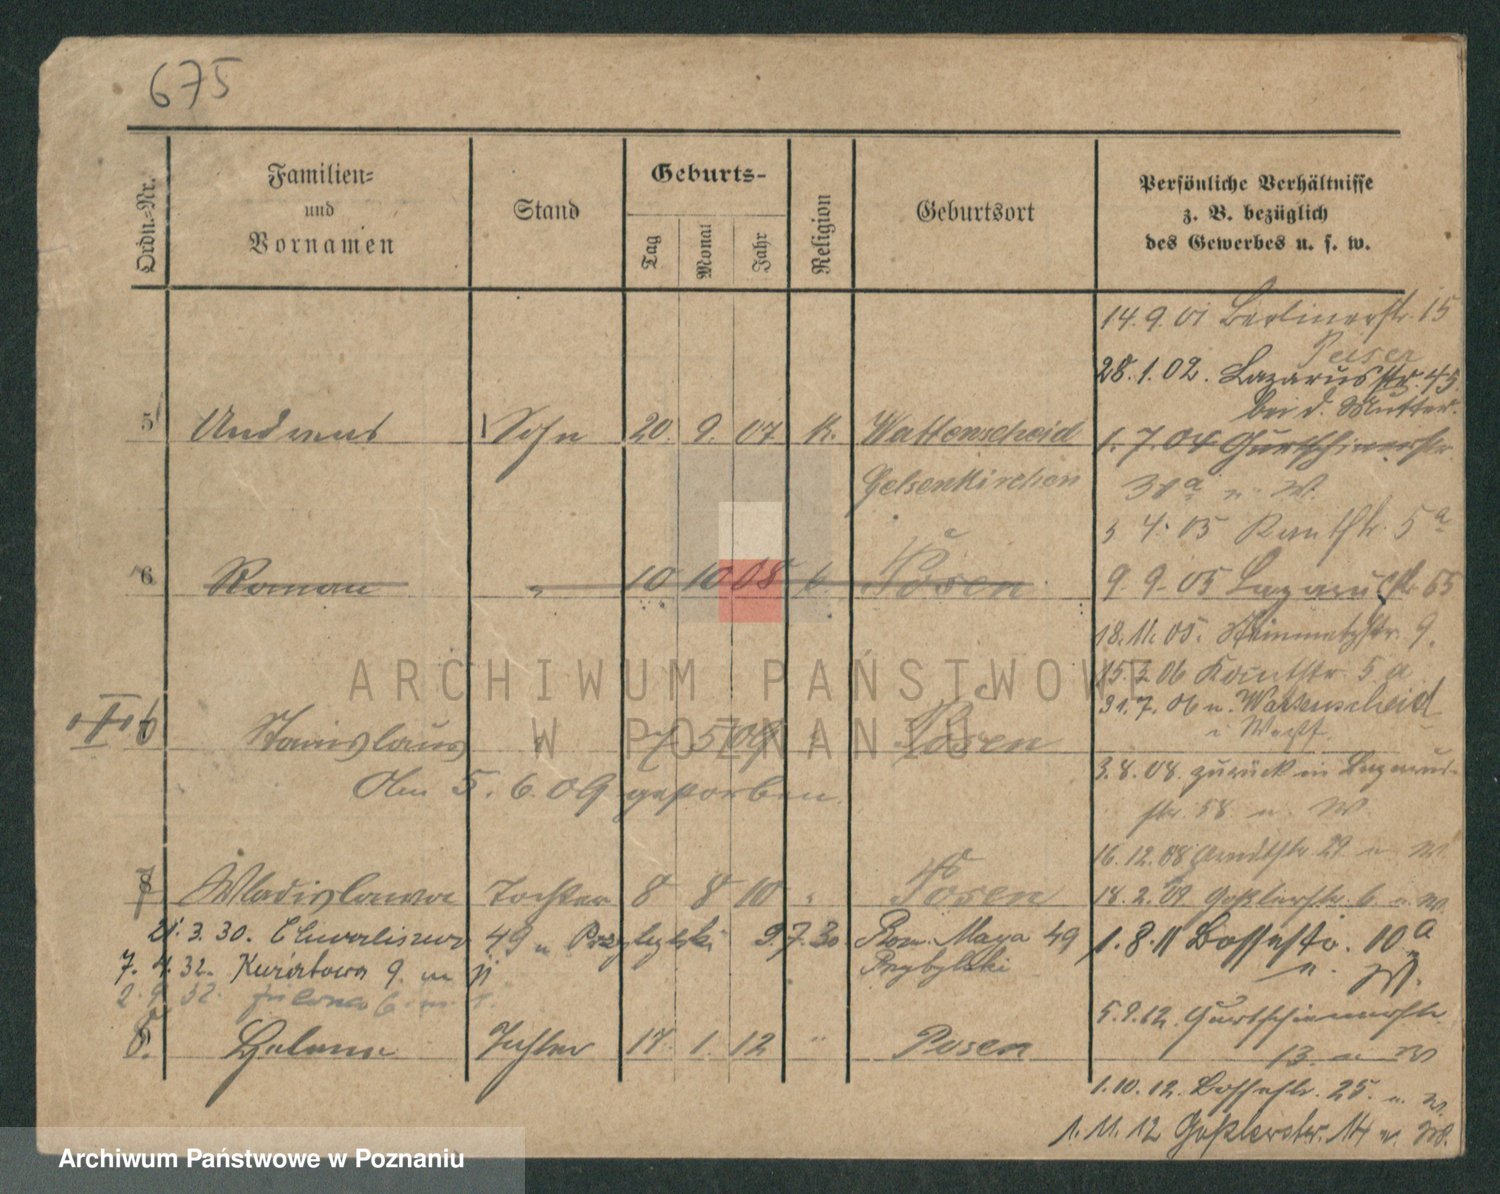 675
Ordn.-Nr.
Familien-
und
Vornamen
Stand
Geburts-
Tag
Monat
Jahr
Religion
Geburtsort
Persönliche Verhältnisse
z. B. bezüglich
des Gewerbes u. s. w.
14. 9. 01 Berlinerstr. 15
28. 1. 02. Lazarusstr. 45
bei d. Mutter.
5 Andreas Sohn 20. 9. 07 K. Wattenscheid
1. 7. 04 Gurtschinerstr.
Gelsenkirchen
38a u. W.
4. 05 Kantstr. 5a
6 Roman " 10 10 08 k Posen
9. 9. 05 Lazarusstr. 65
18. 11. 05. Steinmetzstr. 9.
ARCHIWUM PAŃSTWOWE
W POZNANIU
06 Kantstr. 5a
31. 7. 06 n. Wattenscheid
i Westf.
6 Stanislaus 7 5 09 Posen
3. 8. 08. zurück in Lazarus-
Am 5. 6. 09 gestorben.
str. 58 u. W.
16. 12. 08 Arndtstr. 29 u W
Wladislawa Tochter 8 8 10 " Posen
18. 2. 09 Goßlerstr. 6 u. W.
21. 3. 30. Chwaliszewo 49 u Przybylski 9. 7. 30
49
Przybylski
1. 8. 11 Bosestr. 10a
u. W.
7. 4. 32. 9. m
2. 9 32.
5. 9. 12. Gurtschinerstr.
13. u W
8. Helene Tochter 17 1. 12 " Posen
1. 10. 12. Bosestr. 25. u. W.
1. 11. 12 Goßlerstr. 14 u. W.
Archiwum Państwowe w Poznaniu